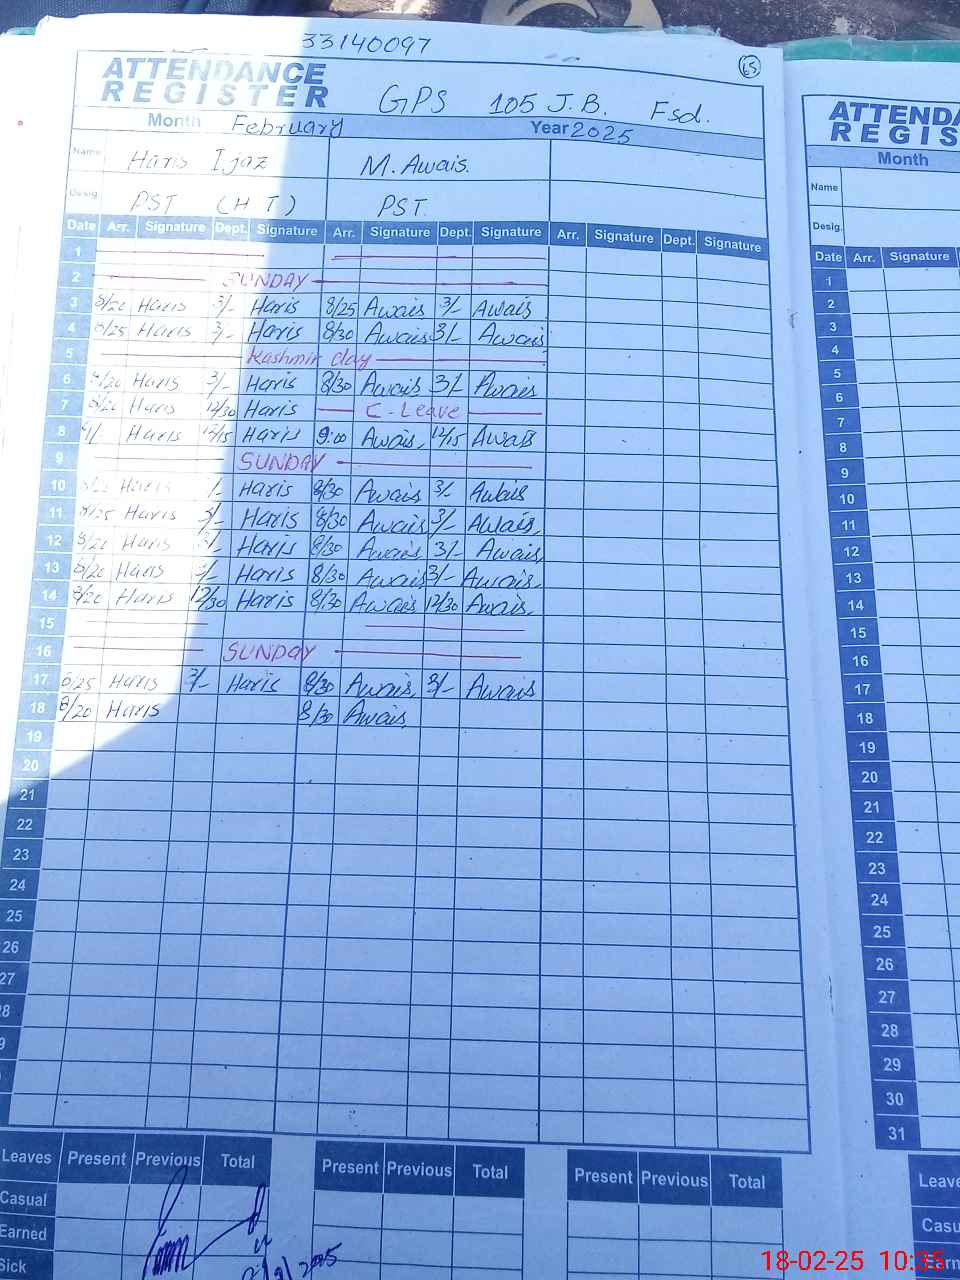 33140097
65
ATTENDANCE
REGISTER
GPS 105 J.B. Fsd.
Month February Year 2025
Name Haris Ijaz M. Awais.
Desig. PST (H T) PST.
Date Arr. Signature Dept. Signature Arr. Signature Dept. Signature Arr. Signature Dept. Signature
1
2 SUNDAY
3 8/20 Haris 3/- Haris 8/25 Awais 3/- Awais
4 8/25 Haris 3/- Haris 8/30 Awais 3/- Awais
5 Kashmir day
6 8/20 Haris 3/- Haris 8/30 Awais 3/- Awais
7 8/20 Haris 12/30 Haris C-Leave
8 9/- Haris 12/15 Haris 9:00 Awais, 12/15 Awais
9 SUNDAY
10 Haris Haris 8/30 Awais 3/- Awais
11 8/25 Haris 3/- Haris 8/30 Awais 3/- Awais,
12 8/20 Haris 3/- Haris 8/30 Awais 3/- Awais,
13 8/20 Haris 3/- Haris 8/30 Awais 3/- Awais,
14 8/20 Haris 12/30 Haris 8/30 Awais 12/30 Awais,
15
16 SUNDAY
17 8/25 Haris 3/- Haris 8/30 Awais, 3/- Awais
18 8/20 Haris 8/30 Awais,
19
20
21
22
23
24
25
26
27
28
9
Leaves Present Previous Total Present Previous Total Present Previous Total
Casual
Earned
Sick
ATTENDA
REGIS
Month
Name
Desig.
Date Arr. Signature
1
2
3
4
5
6
7
8
9
10
11
12
13
14
15
16
17
18
19
20
21
22
23
24
25
26
27
28
29
30
31
Leave
Casu
Earn
18-02-25 10:35